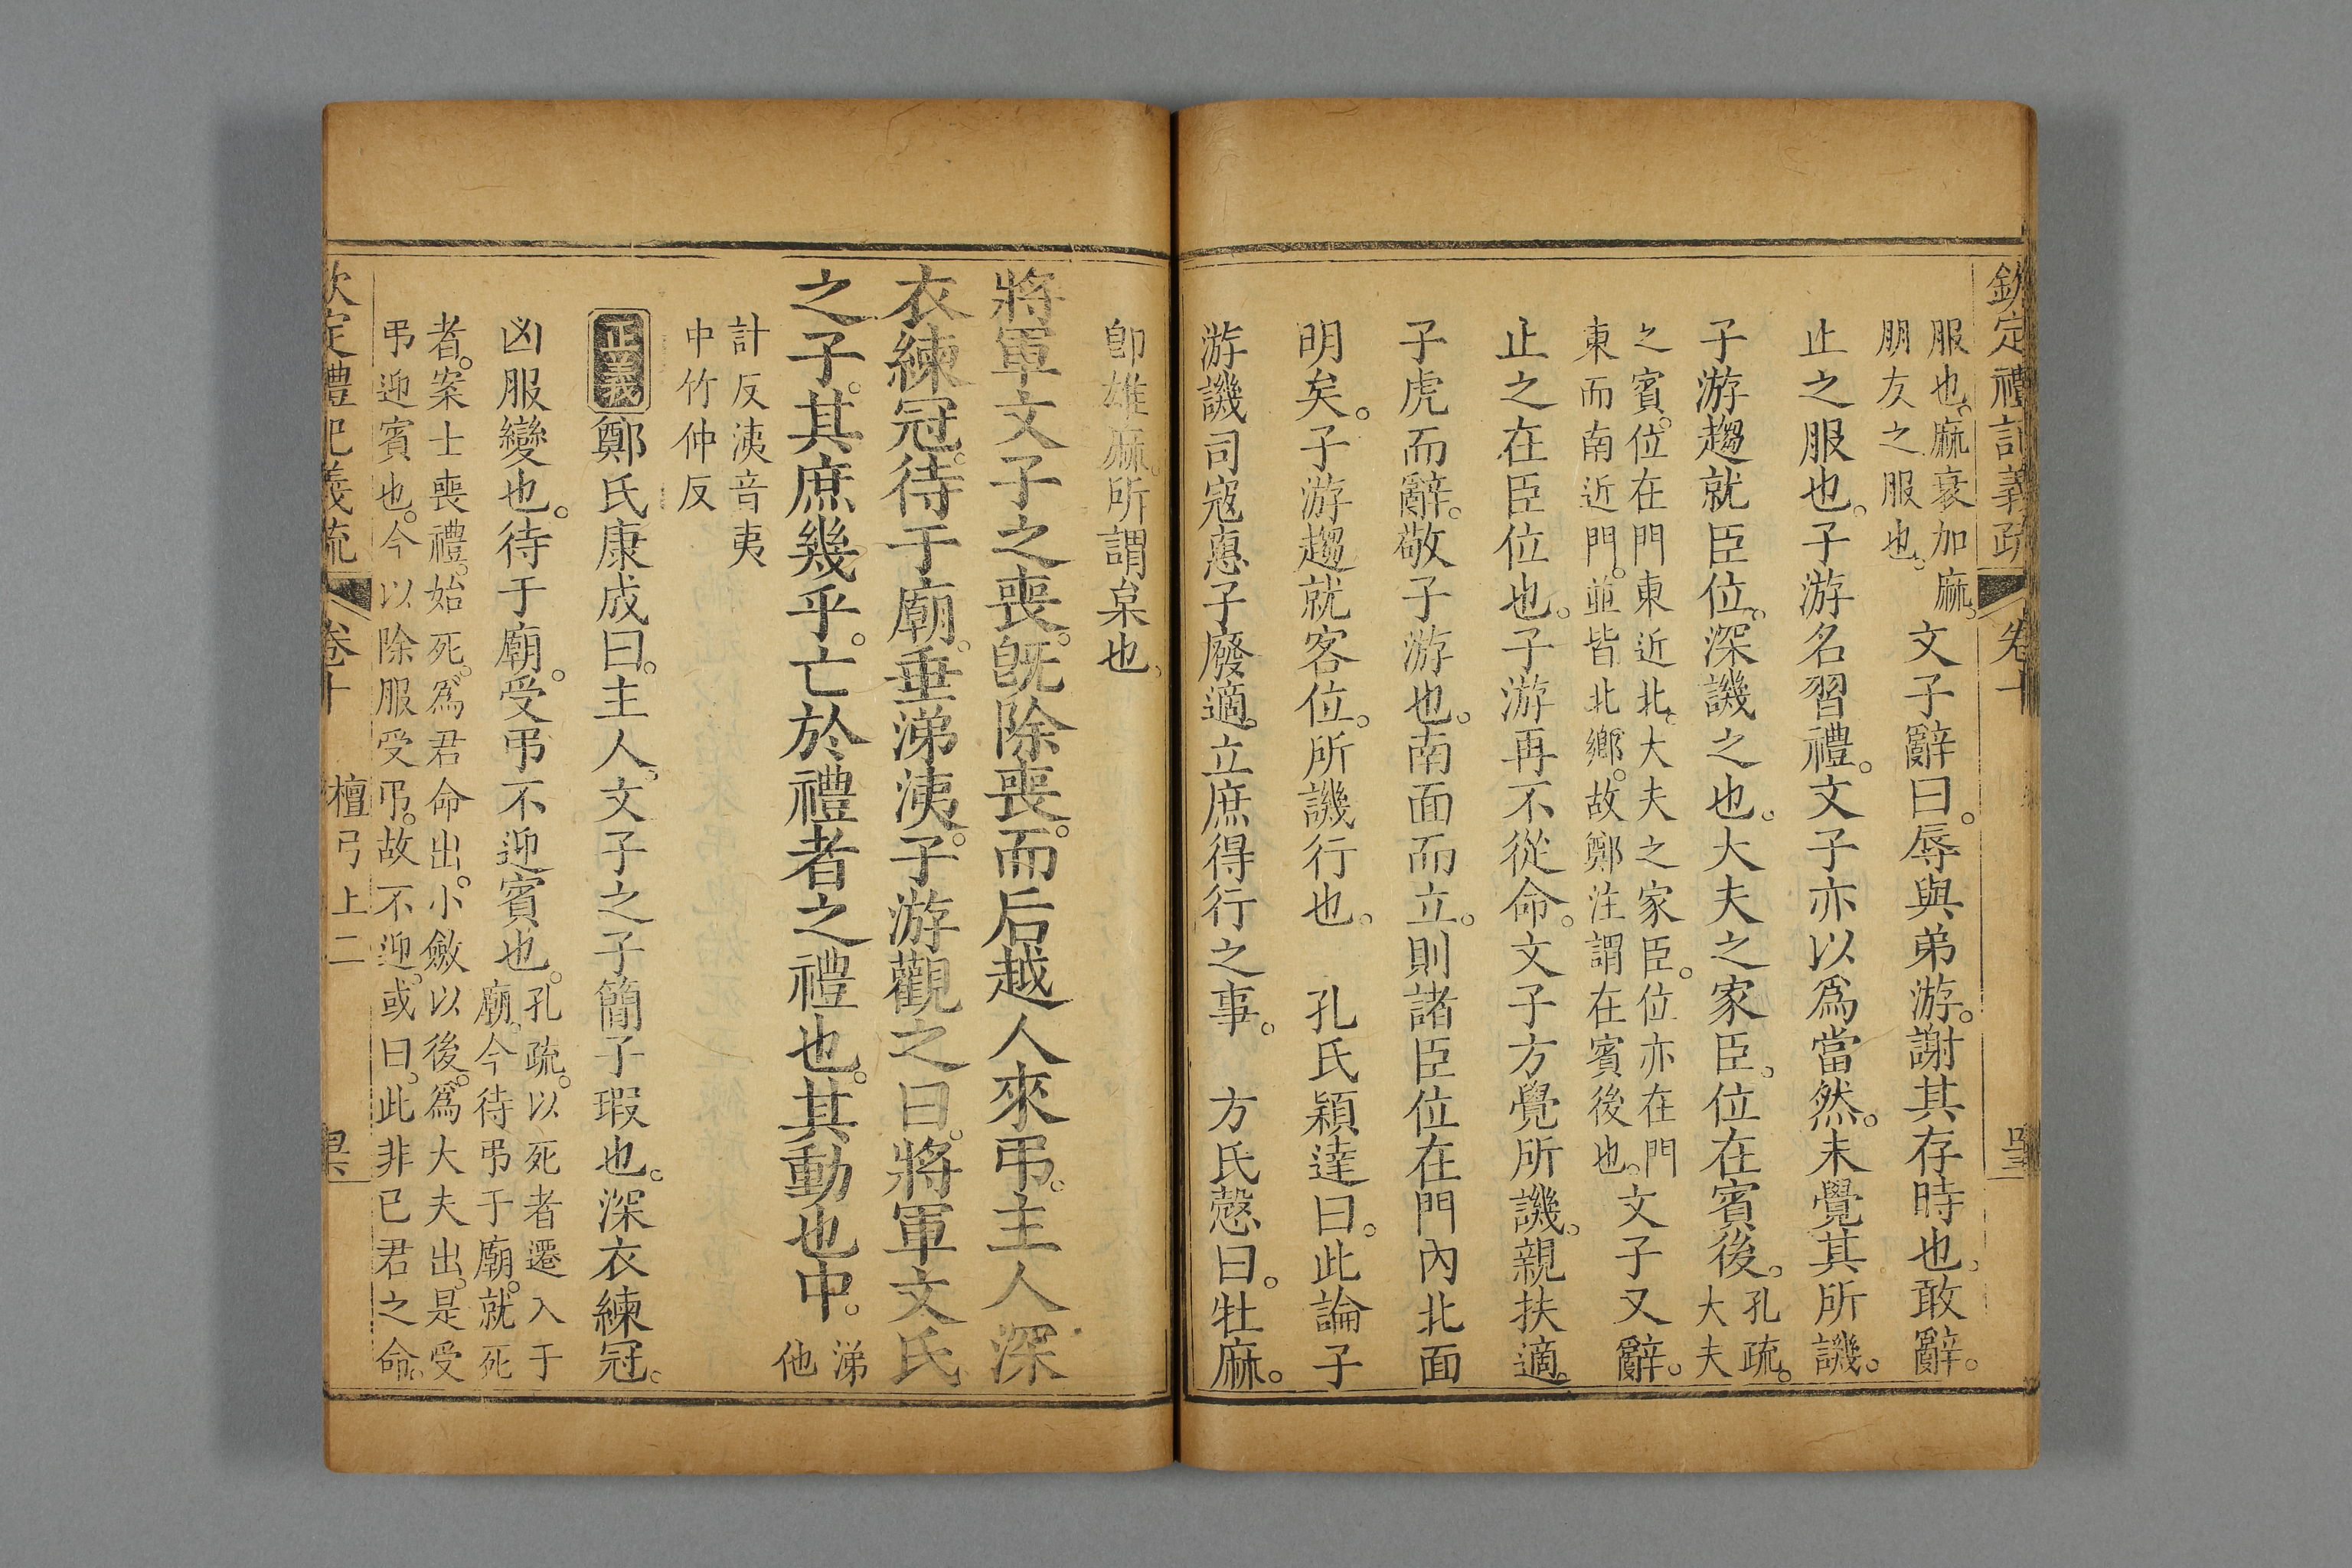 欽定禮記義疏 卷十
服也。麻衰加麻。
朋友之服也。
文子辭曰。辱與弟游。謝其存時也。敢辭。
止之服也。子游名習禮。文子亦以爲當然。未覺其所譏。
子游趨就臣位。深譏之也。大夫之家臣。位在賓後。
孔疏。
大夫
之賓。位在門東近北。大夫之家臣。位亦在門
東而南近門。並皆北鄉。故鄭注謂在賓後也。
文子又辭。
止之在臣位也。子游再不從命。文子方覺所譏。親扶適。
子虎而辭。敬子游也。南面而立。則諸臣位在門內北面
明矣。子游趨就客位。所譏行也。 孔氏穎達曰。此論子
游譏司寇惠子廢適。立庶得行之事。 方氏慤曰。牡麻。
卽雄麻。所謂枲也。
將軍文子之喪。旣除喪。而后越人來弔。主人深
衣練冠。待于廟。垂涕洟。子游觀之曰。將軍文氏
之子。其庶幾乎。亡於禮者之禮也。其動也中。
涕
他
計反洟音夷
中竹仲反
正義 鄭氏康成曰。主人。文子之子簡子瑕也。深衣練冠。
凶服變也。待于廟。受弔不迎賓也。
孔疏。以死者遷入于
廟。今待弔于廟。就死
者。案士喪禮。始死。爲君命出。小斂以後。爲大夫出。是受
弔迎賓也。今以除服受弔。故不迎。或曰。此非已君之命。
欽定禮記義疏 卷十 檀弓上二